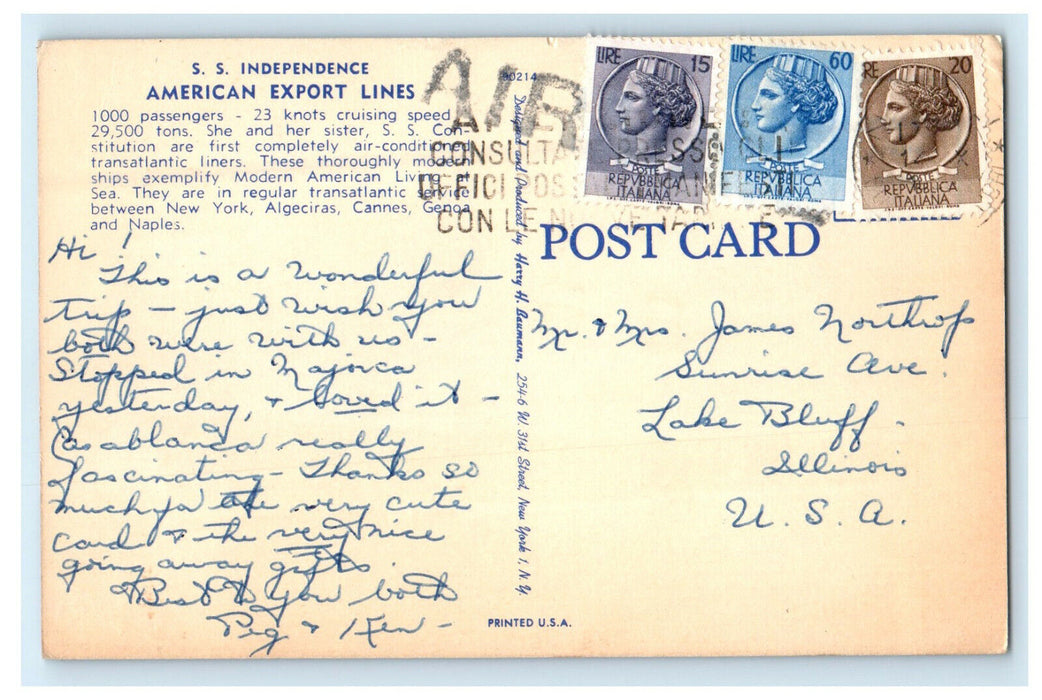 S. S. INDEPENDENCE
AMERICAN EXPORT LINES
1000 passengers - 23 knots cruising speed
29,500 tons. She and her sister, S. S. Con-
stitution are first completely air-conditioned
transatlantic liners. These thoroughly modern
ships exemplify Modern American Living at
Sea. They are in regular transatlantic service
between New York, Algeciras, Cannes, Genoa
and Naples.
Hi!
This is a wonderful
trip - just wish you
both were with us -
Stopped in Majorca
yesterday, & loved it -
Casablanca really
fascinating - Thanks so
much for the very cute
card & the very nice
going away gifts.
Best to you both
Peg & Ken -
AIR
CONSULTA
UFFICI POS
CON LE
90214
Designed and Produced by Harry H. Baumann, 254-6 W. 31st Street, New York 1, N. Y.
LIRE 15
POSTE
REPVBBLICA
ITALIANA
LIRE 60
POSTE
REPVBBLICA
ITALIANA
RE 20
POSTE
REPVBBLICA
ITALIANA
POST CARD
Mr. & Mrs. James Northrop
Sunrise Ave.
Lake Bluff -
Illinois
U. S. A.
PRINTED U.S.A.